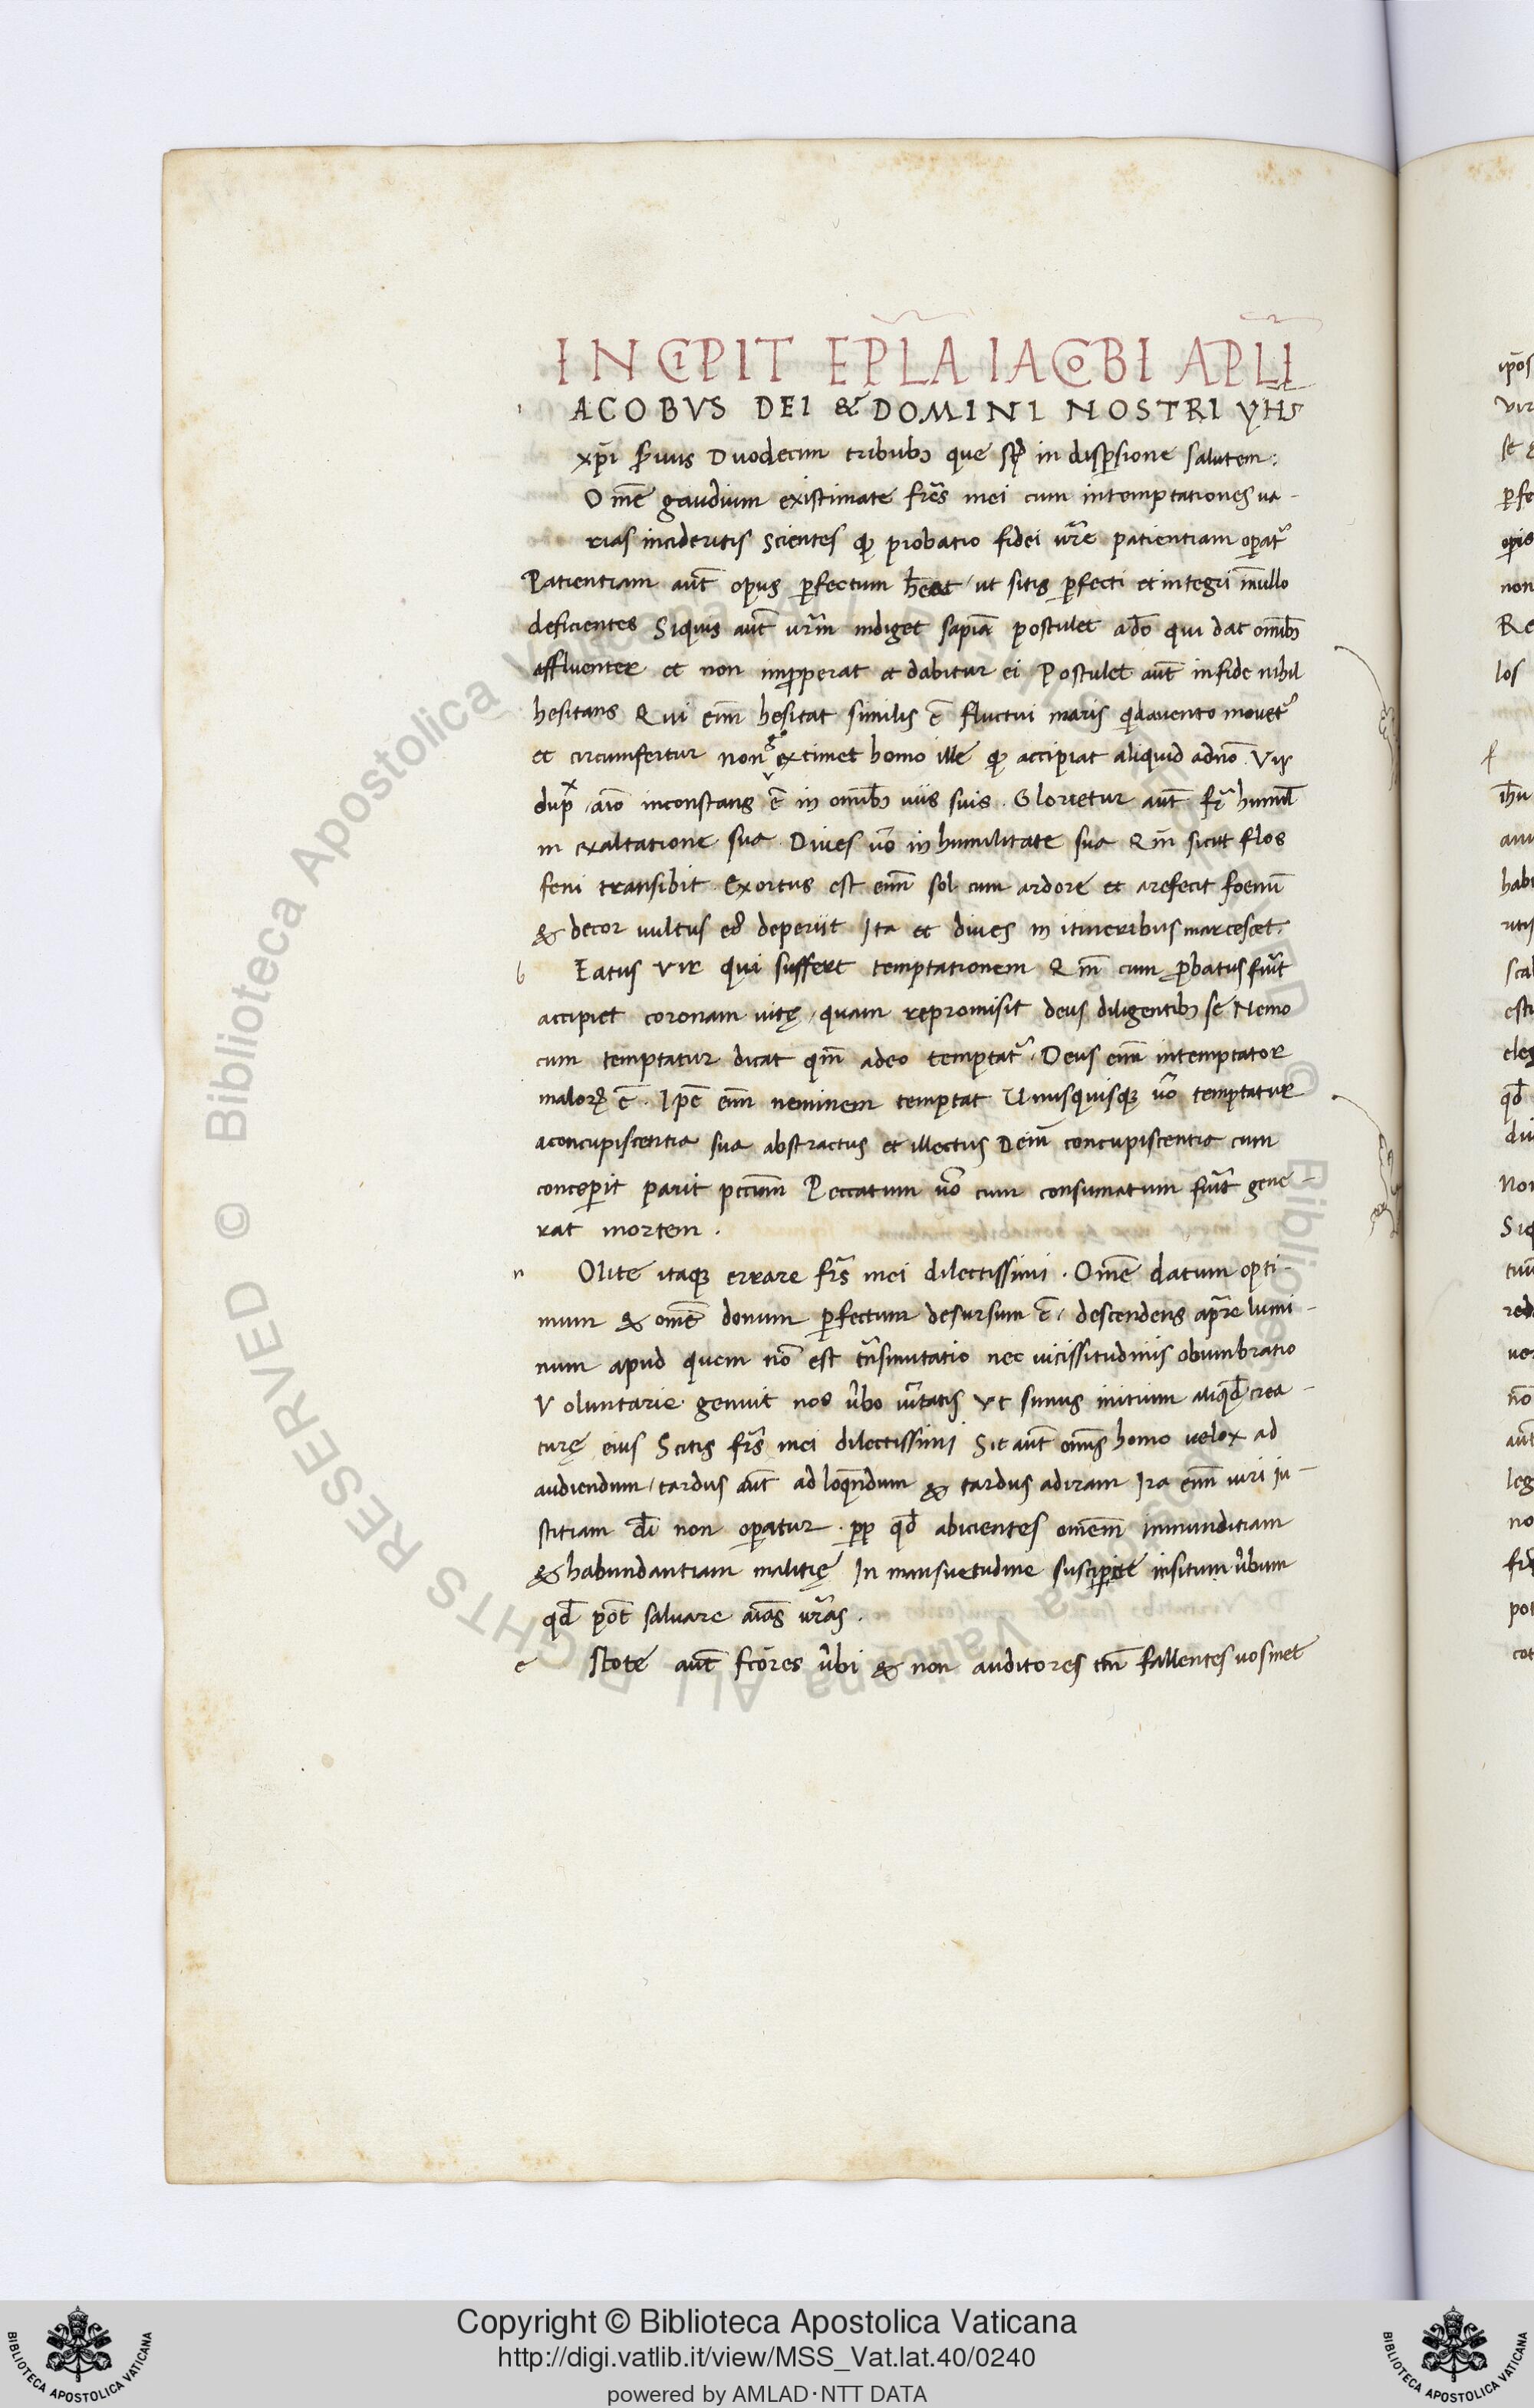 INCIPIT EPL̃A IACOBI APL̃I
ACOBVS DEI & DOMINI NOSTRI YHS̄
xp̄i S̄uus Duodecim tribubꝫ que st̄ in disp̄sione salutem:
Om̄e gaudium existimate fr̄es mei cum in temptationes ua-
rias incideritis scientes ꝙ probatio fidei ur̄e patientiam operat᷑
Patientiam aūt opus ꝑfectum hēat / ut sitis ꝑfecti et integri in nullo
deficientes Siquis aūt ur̄m indiget sapiā postulet a dō qui dat omībꝫ
affluenter et non imꝓperat et dabitur ei Postulet aūt in fide nihil
hesitans Qui eīm hesitat similis ē fluctui maris qi a uento mouet᷑
et circumfertur non go extimet homo ille ꝙ accipiat aliquid a dnō. Vir
dupx aīo inconstans ē in omībꝫ uiis suis. Glorietur aūt fr̄ humil
in exaltatione sua. Diues uō in humilitate sua Qm̄ sicut flos
feni transibit. Exortus est eīm sol cum ardore et arefecit foenū
& decor uultus eꝰ deperiit Ita et diues in itineribus marcescet.
b Eatus vir qui suffert temptationem Qm̄ cum ꝓbatus fuīt
accipiet coronam uitę / quam repromisit deus diligentibꝫ se Nemo
cum temptatur dicat qm̄ a deo temptat᷑. Deus eīm intemptator
maloꝝ ē. Ip̄e eīm neminem temptat Unusquisqꝫ uō temptatur
a concupiscentia sua abstractus et illectus Deīn concupiscentia cum
conceperit parit pccm̄ Peccatum uō cum consumatum fuīt gene-
rat mortem.
n Olite itaqꝫ errare fr̄s mei dilectissimi. Om̄e datum opti-
mum & om̄e donum ꝑfectum desursum ē / descendens a pr̄e lumi-
num apud quem nō est tr̄nsmutatio nec uicissitudinis obumbratio
Voluntarie genuit nos ūbo uītatis Vt simus initium aliqd̄ crea-
turę eius Scitis fr̄s mei dilectissimi Sit aūt om̄s homo uelox ad
audiendum / tardus aūt ad loq̄ndum & tardus ad iram Ira eīm uiri iu-
stitiam dī non operatur. pp qd̄ abicientes om̄em immunditiam
& habundantiam malitię In mansuetudine suscipite insitum ūbum
qd̄ pōt saluare aīas ur̄as.
e stote aūt fc̄ores ūbi & non auditores tm̄ fallentes uosmet
Copyright © Biblioteca Apostolica Vaticana
http://digi.vatlib.it/view/MSS_Vat.lat.40/0240
powered by AMLAD·NTT DATA